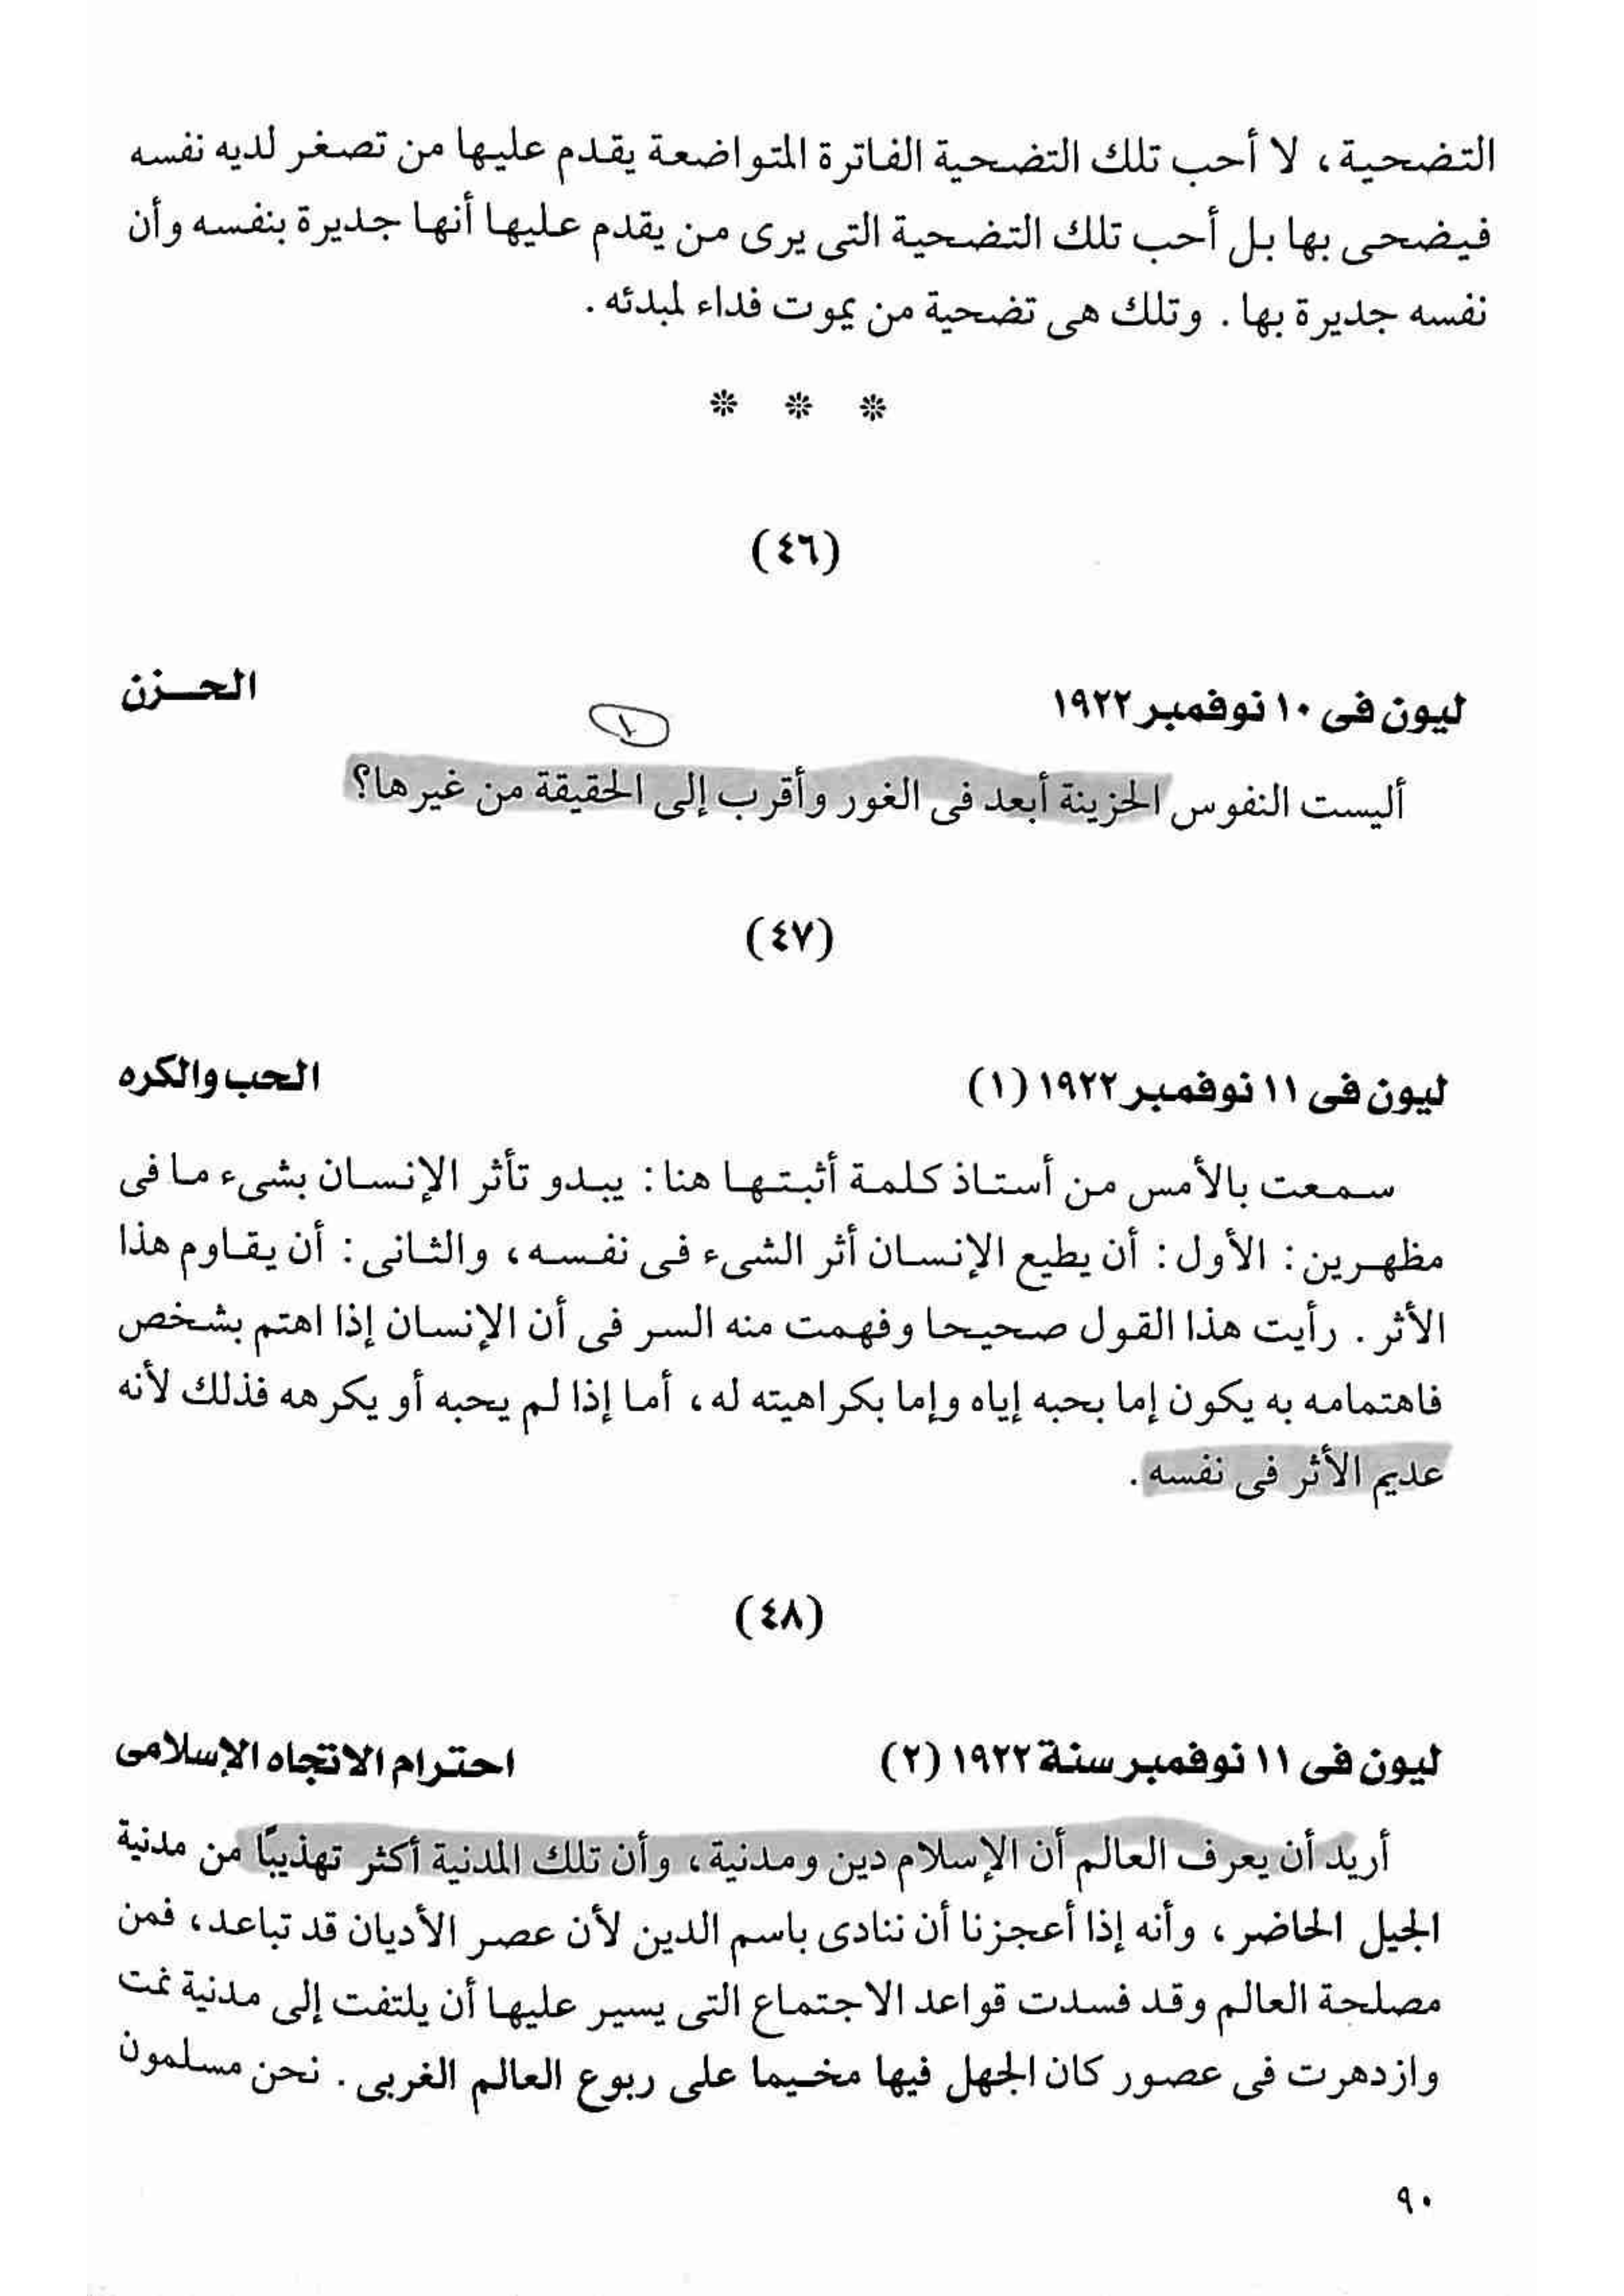 التضحية، لا أحب تلك التضحية الفاترة المتواضعة يقدم عليها من تصغر لديه نفسه
فيضحى بها بل أحب تلك التضحية التى يرى من يقدم عليها أنها جديرة بنفسه وأن
نفسه جديرة بها. وتلك هى تضحية من يموت فداء لمبدئه.
* * *
(٤٦)
ليون فى ١٠ نوفمبر ١٩٢٢ الحزن
١
أليست النفوس الحزينة أبعد فى الغور وأقرب إلى الحقيقة من غيرها؟
(٤٧)
ليون فى ١١ نوفمبر ١٩٢٢ (١) الحب والكره
سمعت بالأمس من أستاذ كلمة أثبتها هنا: يبدو تأثر الإنسان بشىء ما فى
مظهرين: الأول: أن يطيع الإنسان أثر الشىء فى نفسه، والثانى: أن يقاوم هذا
الأثر. رأيت هذا القول صحيحا وفهمت منه السر فى أن الإنسان إذا اهتم بشخص
فاهتمامه به يكون إما بحبه إياه وإما بكراهيته له، أما إذا لم يحبه أو يكرهه فذلك لأنه
عديم الأثر فى نفسه.
(٤٨)
ليون فى ١١ نوفمبر سنة ١٩٢٢ (٢) احترام الاتجاه الإسلامى
أريد أن يعرف العالم أن الإسلام دين ومدنية، وأن تلك المدنية أكثر تهذيبًا من مدنية
الجيل الحاضر، وأنه إذا أعجزنا أن ننادى باسم الدين لأن عصر الأديان قد تباعد، فمن
مصلحة العالم وقد فسدت قواعد الاجتماع التى يسير عليها أن يلتفت إلى مدنية نمت
وازدهرت فى عصور كان الجهل فيها مخيما على ربوع العالم الغربى. نحن مسلمون
٩٠